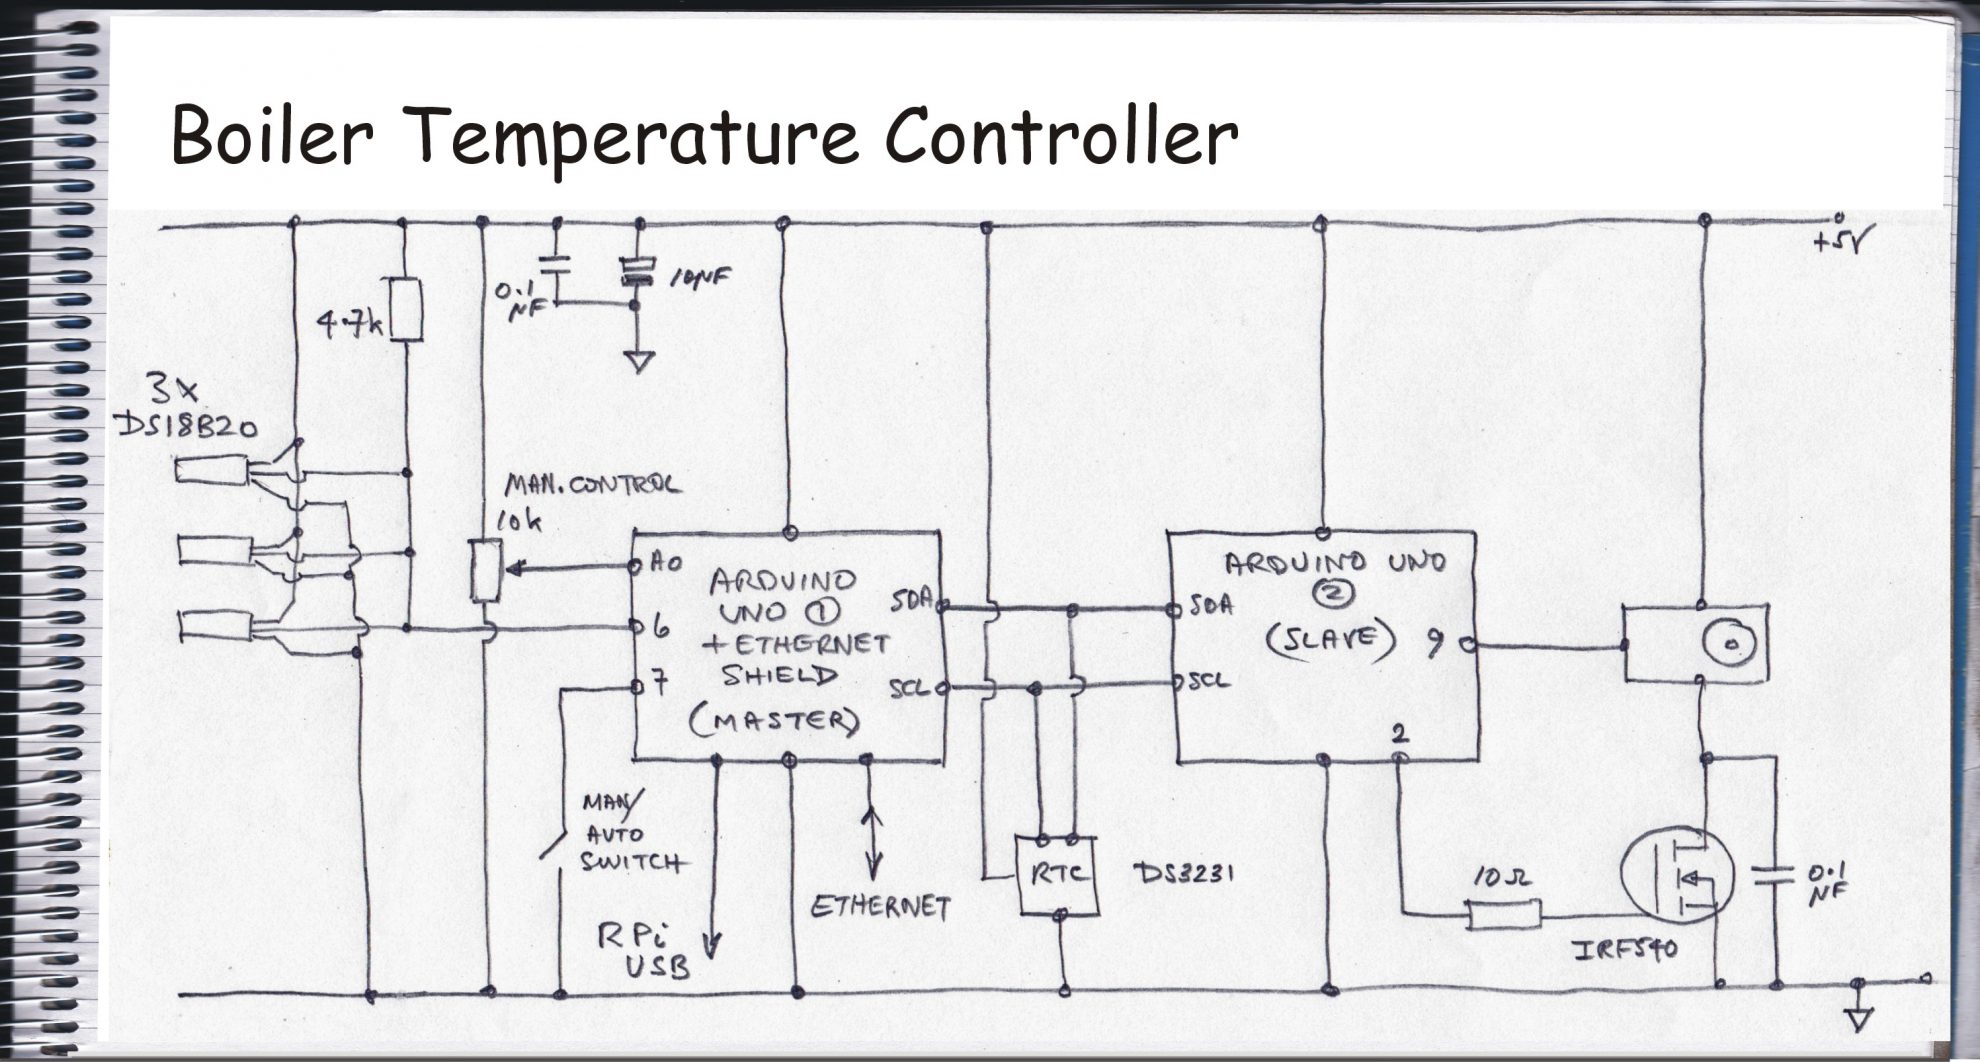 Boiler Temperature Controller
+5V
0.1
µF
10µF
4.7k
3x
DS18B20
MAN. CONTROL
10k
A0
6
7
ARDUINO
UNO ①
+ ETHERNET
SHIELD
(MASTER)
SDA
SCL
ARDUINO UNO
②
(SLAVE)
SDA
SCL
9
2
MAN/
AUTO
SWITCH
RPi
USB
ETHERNET
RTC
DS3231
10Ω
IRF540
0.1
µF